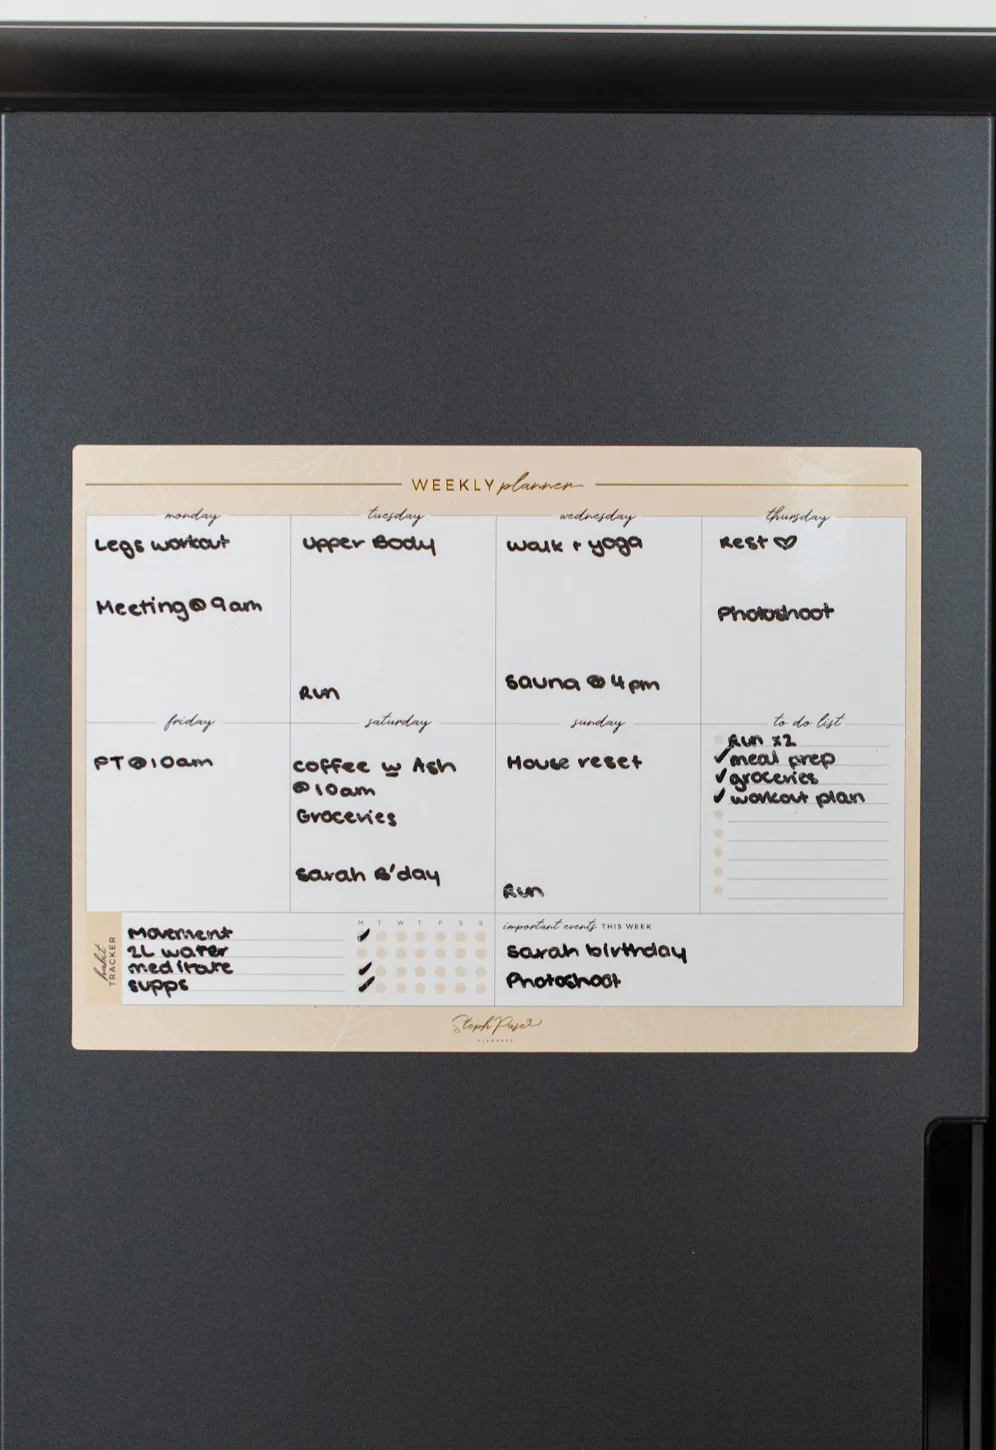 WEEKLY planner
monday
Legs workout
Meeting @ 9am
tuesday
Upper Body
Run
wednesday
Walk + yoga
Sauna @ 4pm
thursday
Rest ♡
Photoshoot
friday
PT @ 10am
saturday
coffee w Ash
@ 10am
Groceries
Sarah B'day
sunday
House reset
Run
to do list
Run x2
✓ meal prep
✓ groceries
✓ workout plan
habit TRACKER
M T W T F S S
Movement ✓
2L water
meditate ✓
supps ✓
important events THIS WEEK
Sarah birthday
Photoshoot
PLANNERS